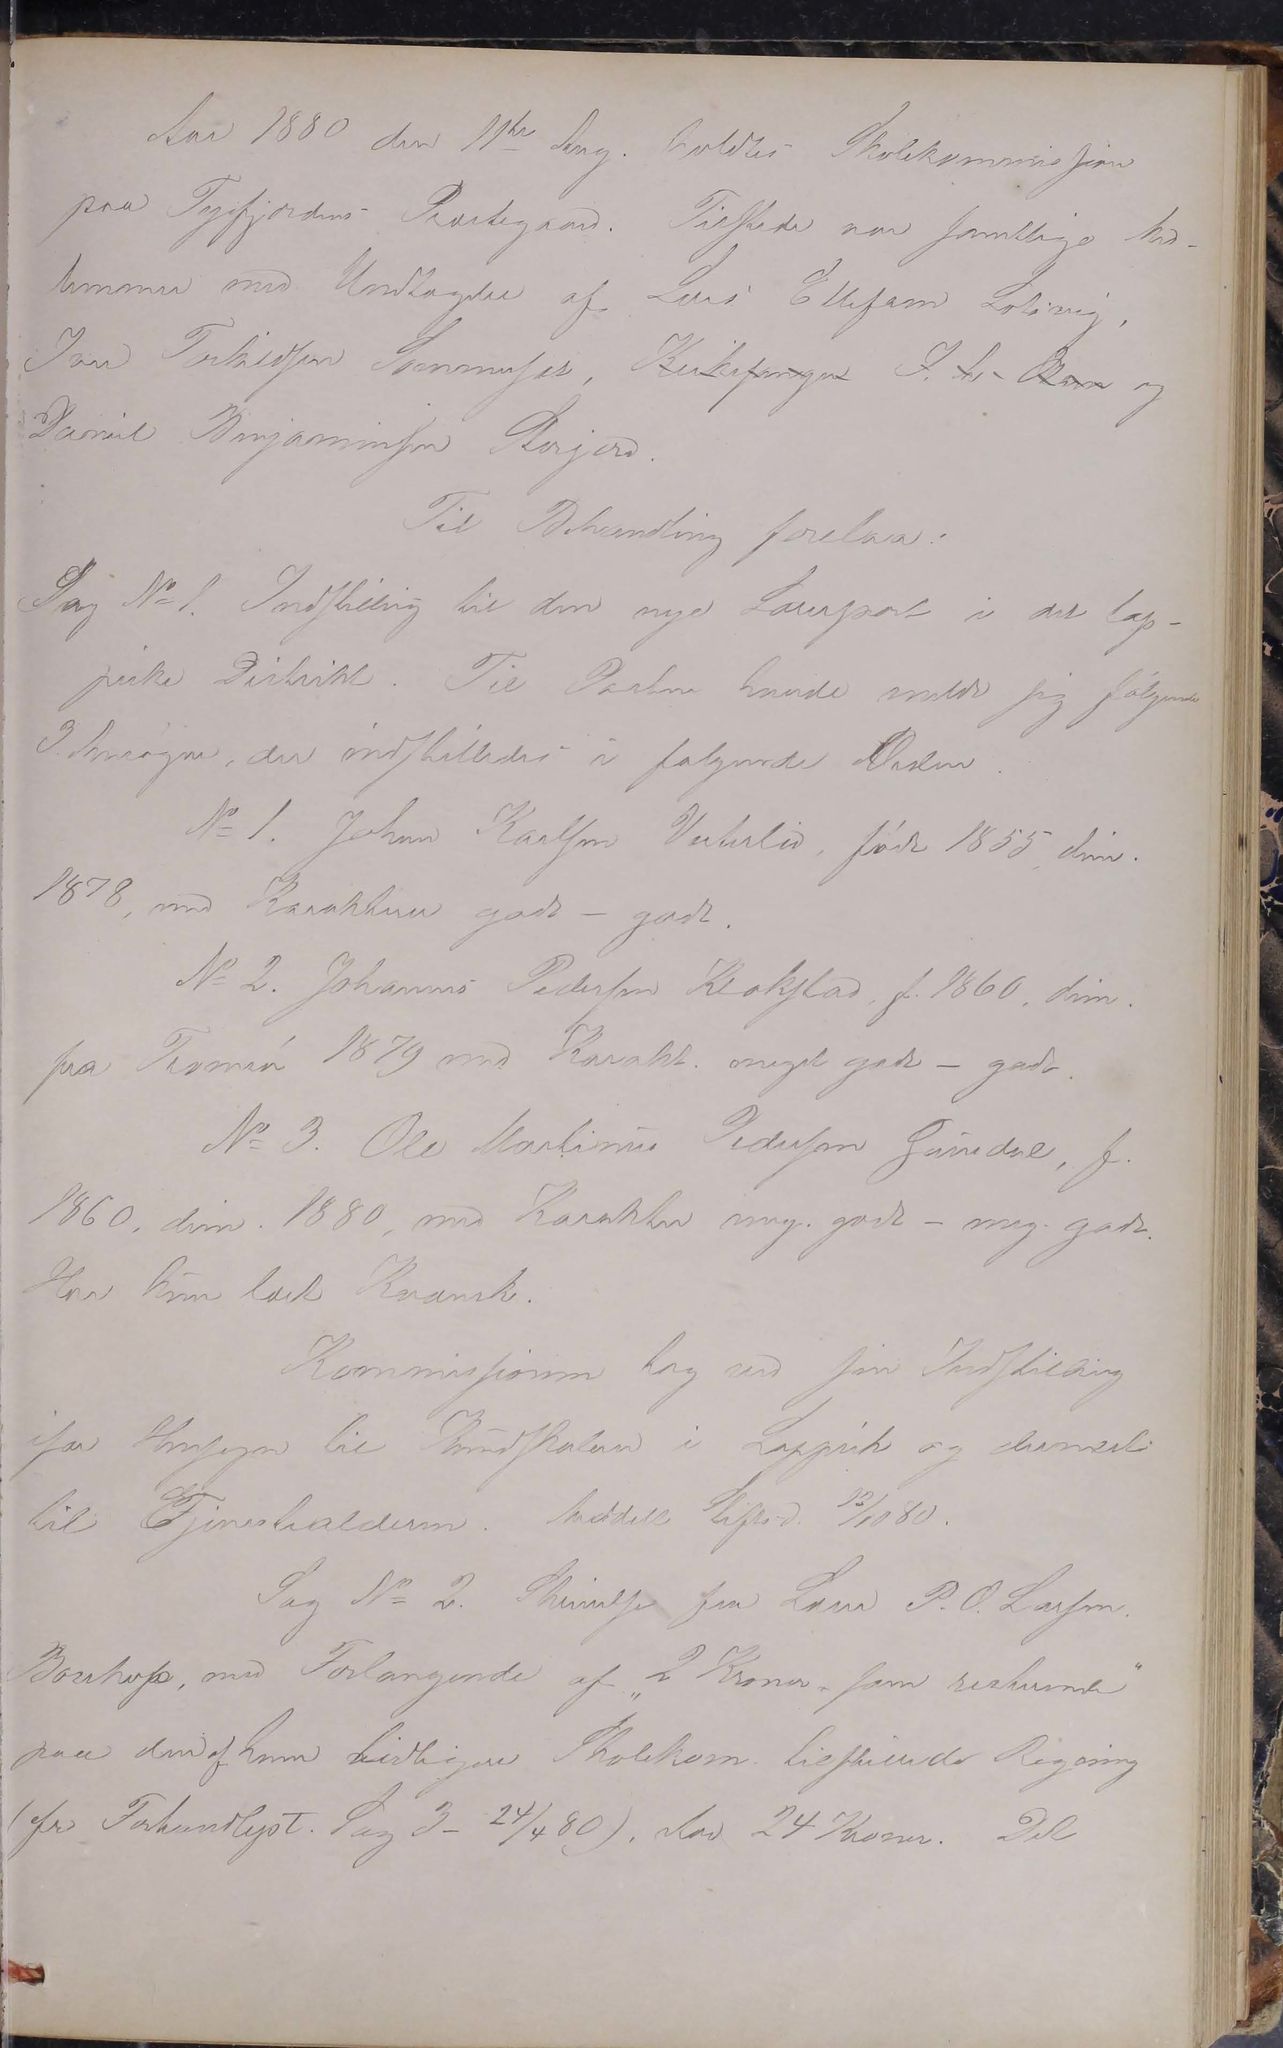 Aar 1880 den 11te Aug. holdtes Skolekommission
paa Tysfjordens Præstegaard. Tilstede var samtlige Med-
lemmer med Undtagelse af Lars Ellefsen Lotsvig,
Iver Torkildsen Sommerset, Kirkesanger J. A. og
Daniel Benjaminsen Storjord.
Til Behandling forelaa:
Sag No 1. Indstilling til den nye Lærerpost i det lap-
piske Distrikt. Til Posten havde meldt sig følgende
3 Ansøgere, der indstilledes i følgende Orden.
No 1. Johan Karlsen Vesterlid, født 1855, dim.
1878, med Karakterer godt – godt.
No 2. Johannes Pedersen Klokstad, f. 1860, dim.
fra Tromsø 1879 med Karakt. meget godt – godt.
No 3. Ole Martinus Pedersen f.
1860, dim. 1880, med Karakter meg. godt – meg. godt.
Har kun lært Kvænsk.
Kommissionen tog ved sin Indstilling
især Hensyn til Kundskaber i Lappisk og dernæst
til Tjenestealderen. Meddelt Stiftsd. 12/10 80.
Sag No 2. Skrivelse fra Lærer P. O. Larsen.
med Forlangende af „2 Kroner som resterende"
paa den af ham tidligere Skolekom. tilstillede Regning
(cfr Forhandlgspr. Sag 3 – 24/4 80), 24 Kroner. Det